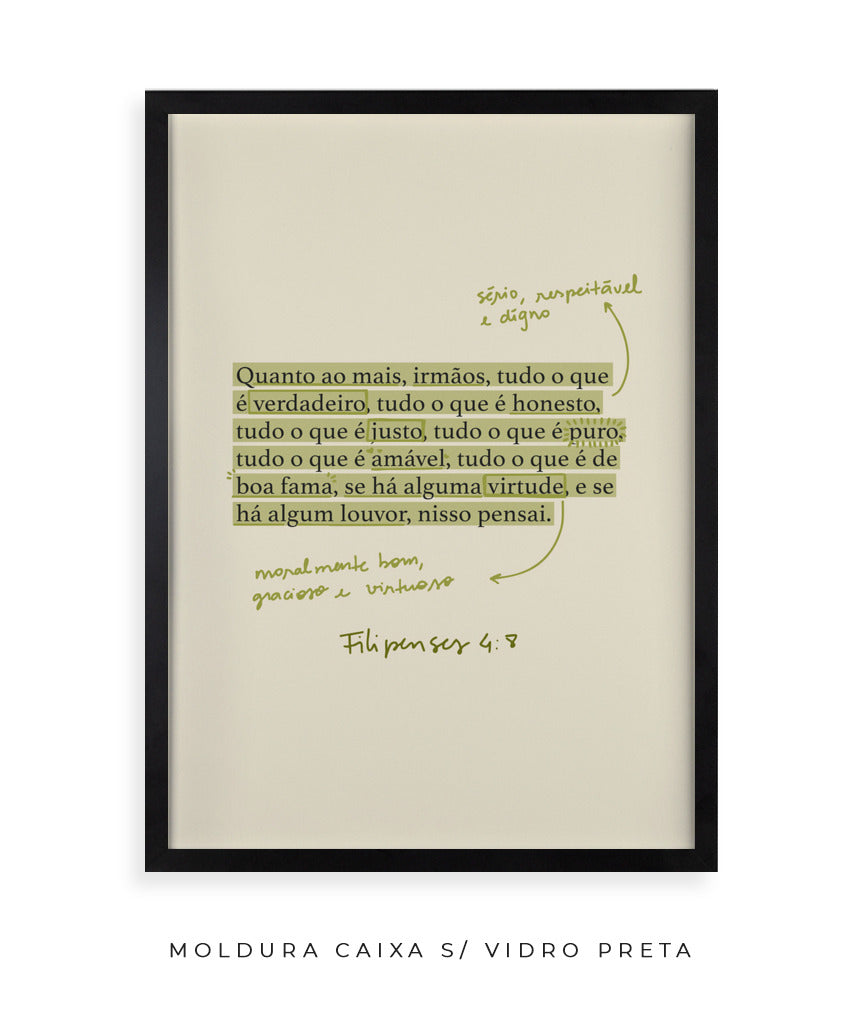 sério, respeitável
e digno
Quanto ao mais, irmãos, tudo o que
é verdadeiro, tudo o que é honesto,
tudo o que é justo, tudo o que é puro,
tudo o que é amável, tudo o que é de
boa fama, se há alguma virtude, e se
há algum louvor, nisso pensai.
moralmente bom,
gracioso e virtuoso
Filipenses 4:8
MOLDURA CAIXA S/ VIDRO PRETA